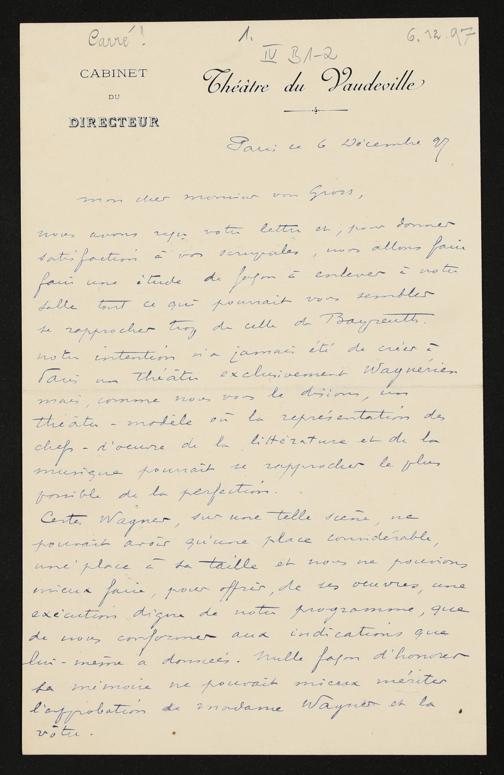 Carré! 1. 6.12.97
IV B1-2
CABINET
DU
DIRECTEUR
Théâtre du Vaudeville
Paris ce 6 Décembre 97
mon cher monsieur von Gross,
nous avons reçu votre lettre et, pour donner
satisfaction à vos scrupules, nous allons faire
faire une étude de façon à enlever à notre
salle tout ce qui pourrait vous sembler
se rapprocher trop de celle de Bayreuth.
notre intention n'a jamais été de créer à
Paris un théâtre exclusivement Wagnérien
mais, comme nous vous le disions, un
théâtre-modèle où la représentation des
chefs-d'oeuvre de la littérature et de la
musique pourrait se rapprocher le plus
possible de la perfection.
Certes Wagner, sur une telle scène, ne
pourrait avoir qu'une place considérable,
une place à sa taille et nous ne pouvions
mieux faire, pour offrir, de ses oeuvres, une
exécution digne de notre programme, que
de nous conformer aux indications que
lui-même a données. Nulle façon d'honorer
sa mémoire ne pouvait mieux mériter
l'approbation de madame Wagner et la
vôtre.